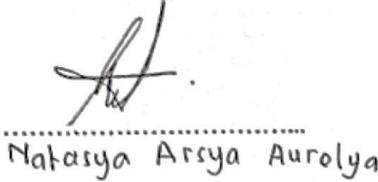 Natasya Arsya Aurolya